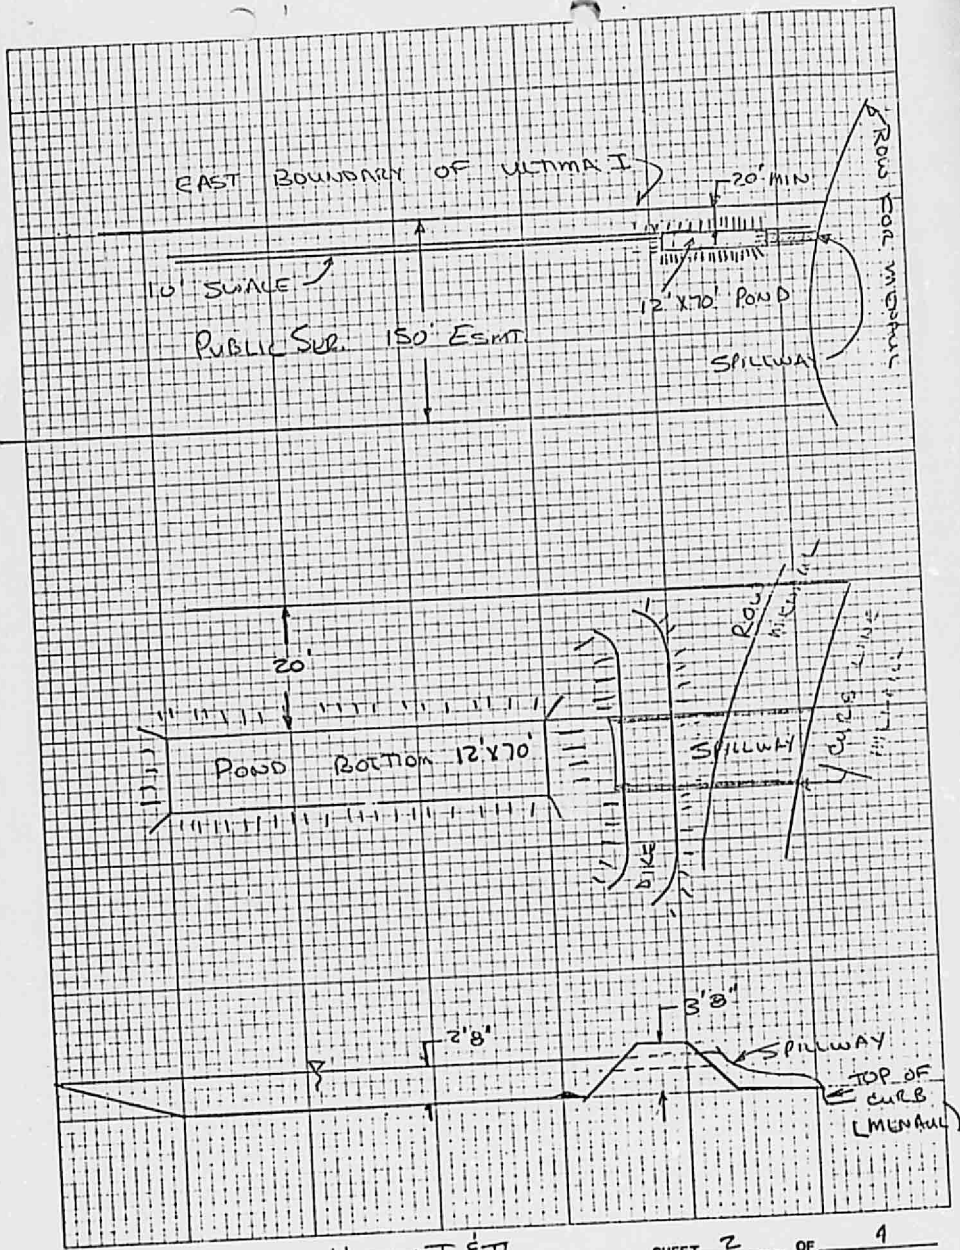 EAST BOUNDARY OF ULTIMA I
20' MIN
ROW FOR MENAUL
10' SWALE
12' X 70' POND
PUBLIC SER. 150' ESMT.
SPILLWAY
20'
ROW
MENAUL
CURB LINE
POND BOTTOM 12'X70'
SPILLWAY
DIKE
3'8"
2'8"
SPILLWAY
TOP OF
CURB
(MENAUL)
SHEET 2 OF 4